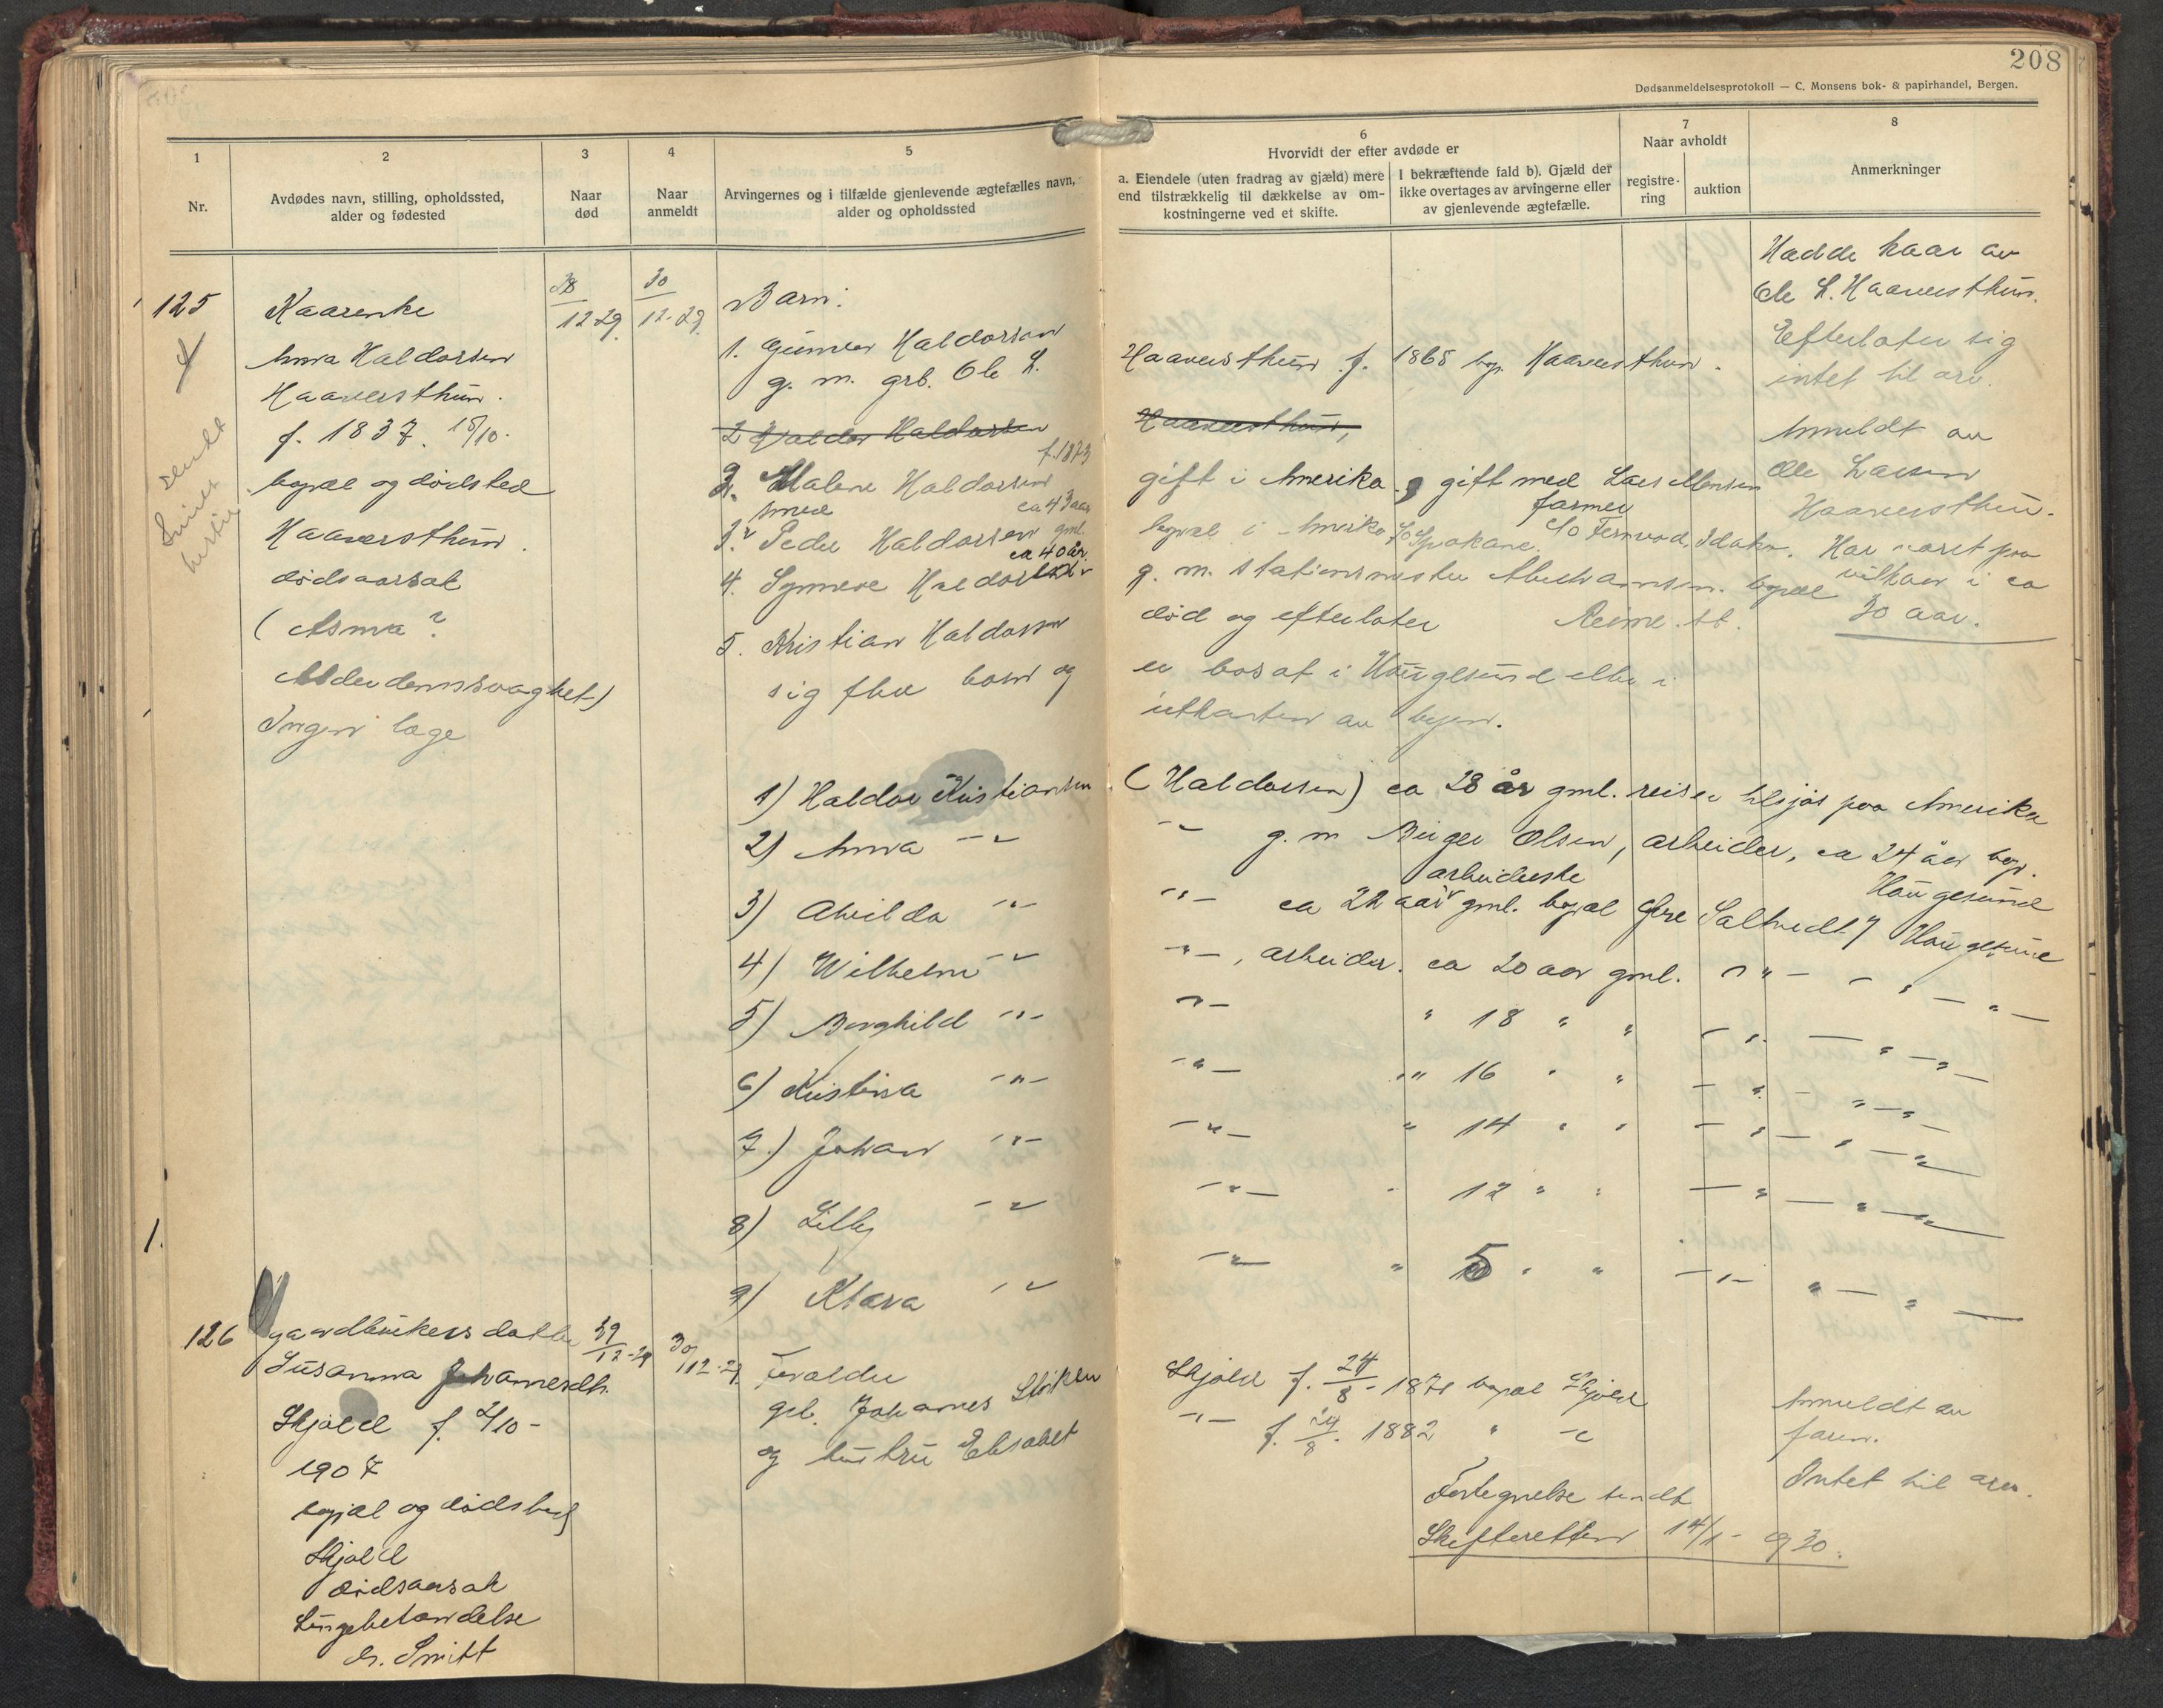 208
Dødsanmeldelsesprotokoll — C. Monsens bok- & papirhandel, Bergen.
1
Nr.
2
Avdødes navn, stilling, opholdssted,
alder og fødested
3
Naar
død
4
Naar
anmeldt
5
Arvingernes og i tilfælde gjenlevende ægtefælles navn,
alder og opholdssted
6
Hvorvidt der efter avdøde er
a. Eiendele (uten fradrag av gjæld) mere
end tilstrækkelig til dækkelse av om-
kostningerne ved et skifte.
I bekræftende fald b). Gjæld der
ikke overtages av arvingerne eller
av gjenlevende ægtefælle.
7
Naar avholdt
registre-
ring
auktion
8
Anmerkninger
125
Kaarenke
Anna Haldorsen
Haaversthun.
f. 1837. 15/10.
bopæl og dødsted
Haaversthun.
dødsaarsak
(Asma?
Alderdomssvaghet)
Ingen læge
12-29
30
12-29
Barn:
1. Gunvor Haldorsen
g. m. grb. Ole L. Haaversthun f. 1868 bop. Haaversthun.
2 Haldor Haldorsen Haaversthun,
f. 1873
2. Malene Haldorsen gift i Amerika, gift med Lars Monsen
smed ca 43 aar farmer
3. Peder Haldorsen gml. bopæl i Amerika Spokane. c/o Fernwood, Idaho.
ca 40 år.
4. Synneve Haldorsdr g. m. stationsmester Abrahamsen. bopæl
Reime st.
5. Kristian Haldorsen død og efterlater
sig flere barn og er bosat i Haugesund eller i
utkanten av byen.
Hadde kaar av
Ole L. Haaversthun.
Efterlater sig
intet til arv.
Anmeldt av
Ole Larsen
Haaversthun.
Har været paa
vilkaar i ca
30 aar.
1) Haldor Kristiansen (Haldorsen) ca 28 år gml. reiser tilsjøs paa Amerika
2) Anna -"- -"- g. m Birger Olsen, arbeider, ca 24 år bop.
Haugesund
arbeiderske
3) Alvilda -"- -"- ca 22 aar gml. bopæl Øvre Saltvedt 7 Haugesund
4) Wilhelm -"- -"-, arbeider. ca 20 aar gml. -"- -"- -"-
5) Borghild -"- -"- " 18 " " -"- -"-
6) Kristina -"- -"- " 16 " " -"- -"-
7.) Johan -"- -"- " 14 " " -"- -"-
8) Lilly -"- -"- " 12 " " -"- -"-
9) Klara -"- -"- " 5 " " -"- -"-
126
gaardbrukers datter
Susanna Johannesdtr.
Skjold f. 2/10-
1907
bopæl og dødsted
Skjold
dødsaarsak
Lungebetændelse
dr. Smitt
29
12-29
30
12-29
Forældre
grb. Johannes Skjold f. 24/8-1871 bopæl Skjold
og hustru Elisabet -"- f. 24/8. 1882 " -"-
Anmeldt av
faren.
Intet til arv.
Fortegnelse sendt
Skifteretten 14/1-930.